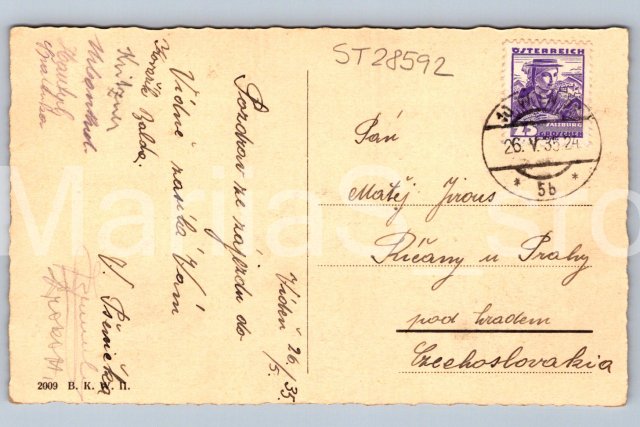 ST28592
Vídeň 26/5. 35.
Pozdrav ze zájezdu do
Vídně zasílá Vám
V. Pšenička
Kritzner
ÖSTERREICH
SALZBURG
GROSCHEN
WIEN
26. V. 35 24
* 5b *
Pán
Matěj Jirous
Říčany u Prahy
pod hradem
Czechoslovakia
2009 B. K. W. I.
MarijaS